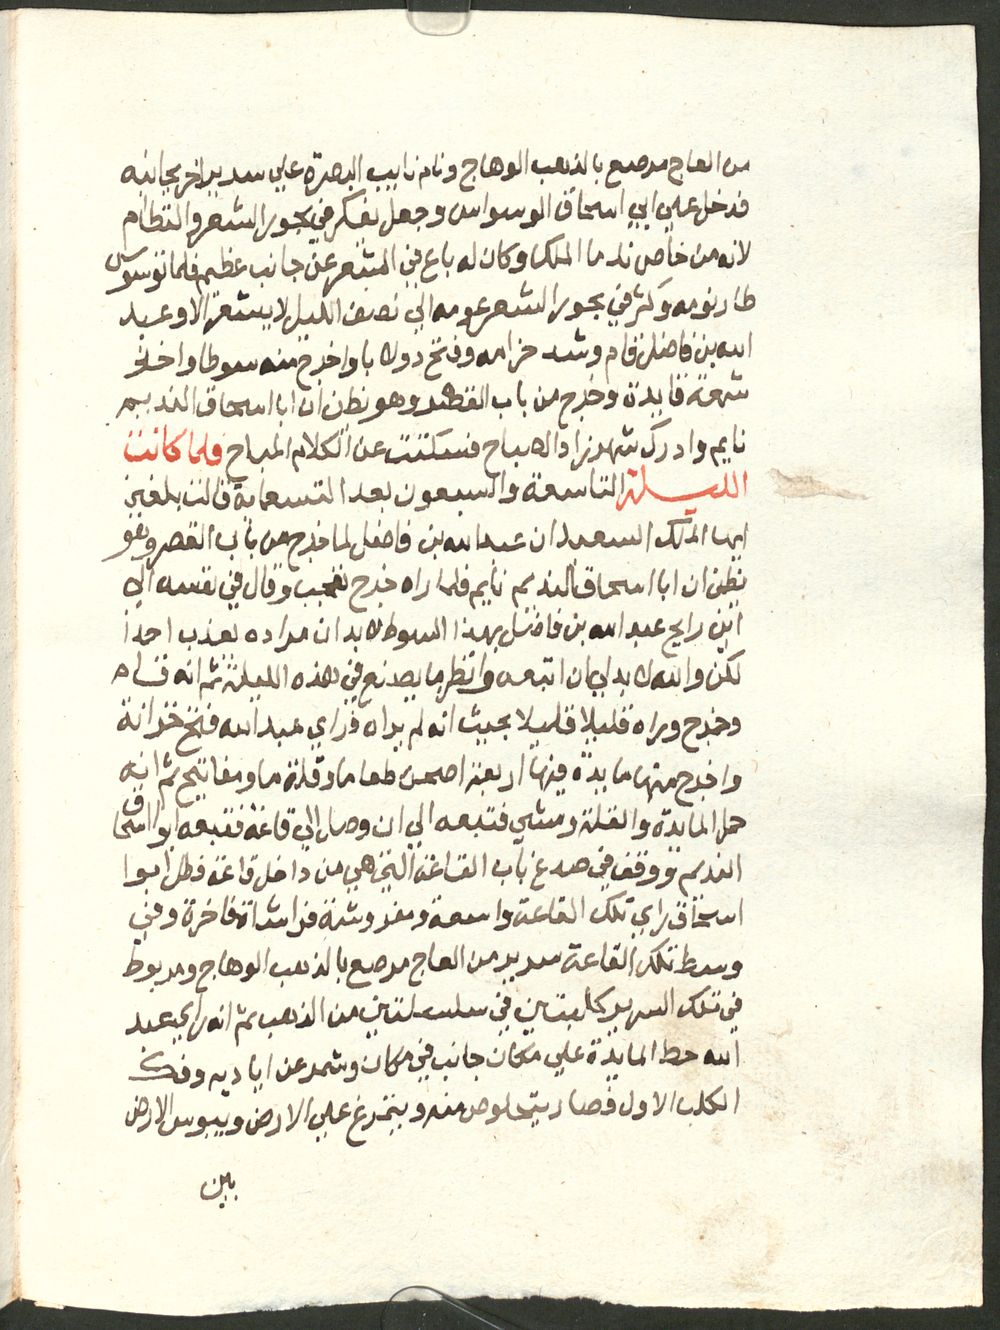 من العاج مرصع بالذهب الوهاج ونام نايب البصرة علي سرير اخر بجانبه
فدخل علي ابي اسحاق الوسواس وجعل يفكر في بحور الشعر والنظام
لانه من خاص ندما الملك وكان له باع في الشعر عن جانب عظيم فلما توسوس
طار نومه وكثر في بحور الشعر عومه الي نصف الليل لا يشعر الا وعبد
الله بن فاضل قام وشد حزامه وفتح دولابا واخرج منه سوطا واخذ
شمعة قايدة وخرج من باب القصر وهو يظن ان ابا اسحاق النديم
نايم وادرك شهرزاد الصباح فسكتت عن الكلام المباح فلما كانت
الليلة التاسعة والسبعون بعد التسعماية قالت بلغني
ايها الملك السعيد ان عبد الله بن فاضل لما خرج من باب القصر وهو
يظن ان ابا اسحاق النديم نايم فلما راه خرج تعجب وقال في نفسه الي
اين رايح عبد الله بن فاضل بهذا السوط لابد ان مراده يعذب احدا
لكن والله لا بد لي ان اتبعه وانظر ما يصنع في هذه الليلة ثم انه قام
وخرج وراه قليلا قليلا بحيث انه لم يراه فراي عبد الله فتح خزانة
واخرج منها مايدة فيها اربعة اصحن طعاما وقلة ما ومفاتيح ثم انه
حمل المايدة والقلة ومشي فتبعه الي ان وصل الي قاعة فتبعه ابوا اسحاق
النديم ووقف في صدغ باب القاعة التي هي من داخل قاعة فطل ابوا
اسحاق راي تلك القاعة واسعة ومفروشة فراشات فاخرة وفي
وسط تلك القاعة سرير من العاج مرصع بالذهب الوهاج ومربوط
في تلك السرير كلبتاين في سلسلتاين من الذهب ثم انه راي عبد
الله حط المايدة علي مكان جانب في مكان وشمر عن اياديه وفك
الكلب الاول فصار يتحلوص منه ويتمرغ علي الارض ويبوس الارض
بين